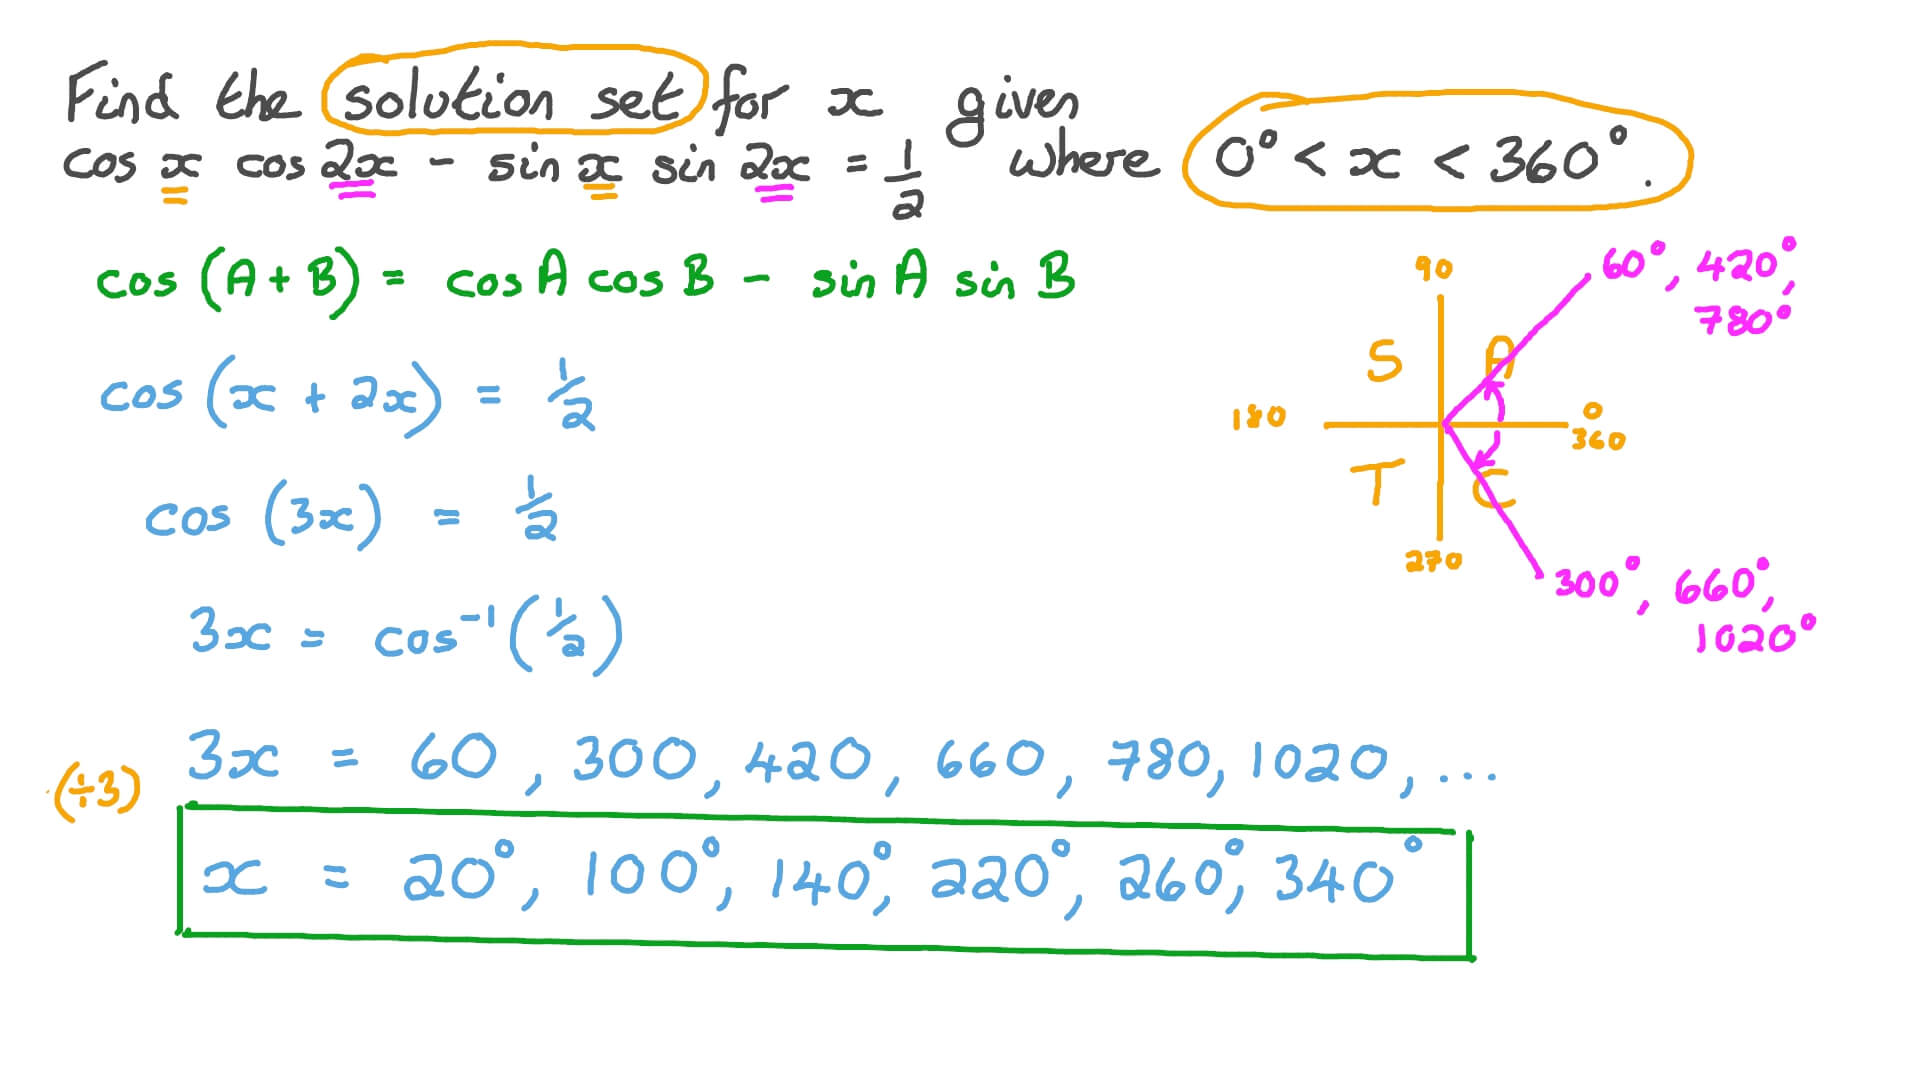 Find the solution set for x given
cos x cos 2x - sin x sin 2x = 1/2 where 0° < x < 360°.
cos (A + B) = cos A cos B - sin A sin B
cos (x + 2x) = 1/2
cos (3x) = 1/2
3x = cos⁻¹ (1/2)
(÷3) 3x = 60, 300, 420, 660, 780, 1020, ...
x = 20°, 100°, 140°, 220°, 260°, 340°
90
60°, 420°,
780°
S A
180
0
360
T C
270
300°, 660°,
1020°